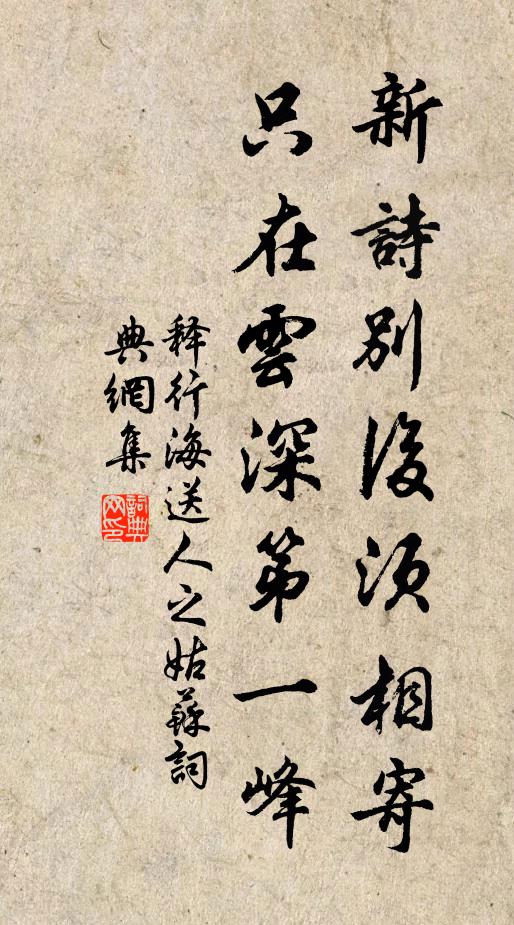 新詩别後須相寄
只在雲深第一峰
释行海送人之姑蘇詞
典網集
詞典网印